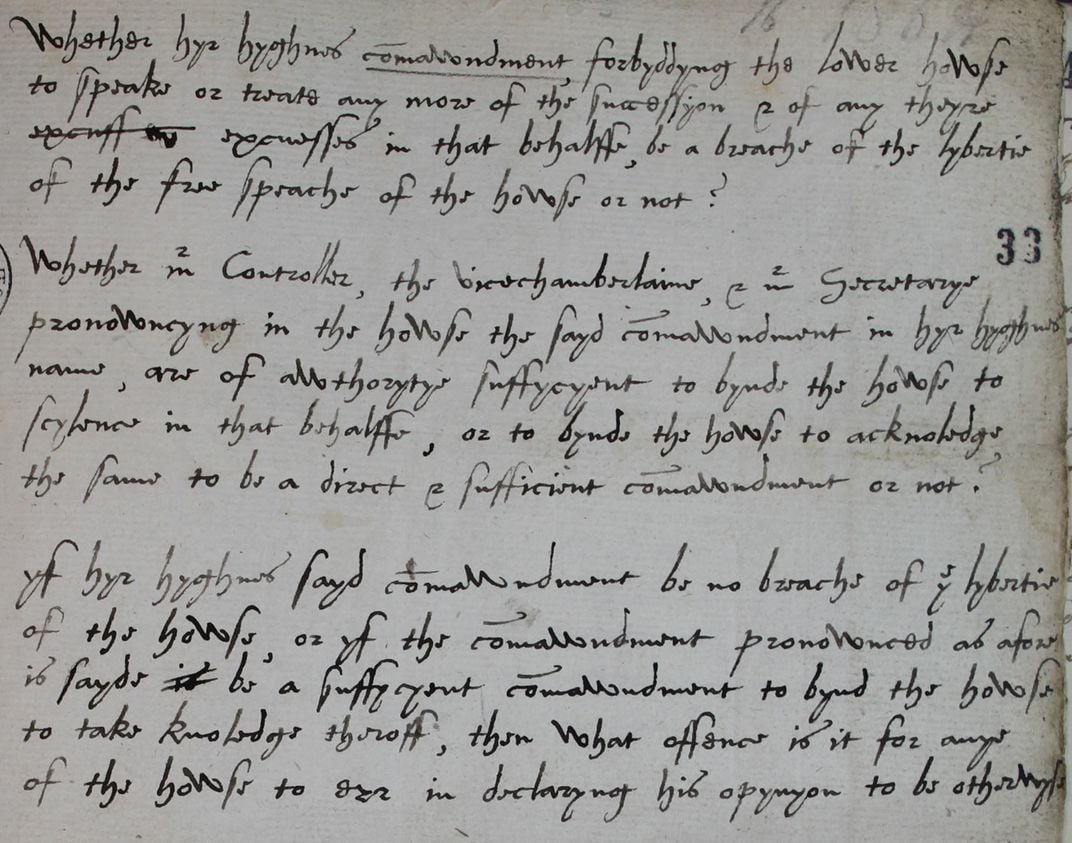 Whether hyr hyghnes com̄awndment, forbyddyng the lower howse
to speake or treate any more of the successyon & of any theyre
excuses in that behalffe, be a breache of the lybertie
of the free speache of the howse or not?
33
Whether mr Controller, the vicechamberlaine, & mr Secretarye
pronowncyng in the howse the sayd com̄awndment in hyr hyghnes
name, are of awthorytye suffycyent to bynde the howse to
scylence in that behalffe, or to bynde the howse to acknoledge
the same to be a direct & sufficient com̄awndment or not?
yf hyr hyghnes sayd com̄awndment be no breache of ye lybertie
of the howse, or yf the com̄awndment pronownced as afore
is sayde it be a suffycyent com̄awndment to bynd the howse
to take knoledge theroff, then what offence is it for anye
of the howse to err in declaryng his opynyon to be otherwyse